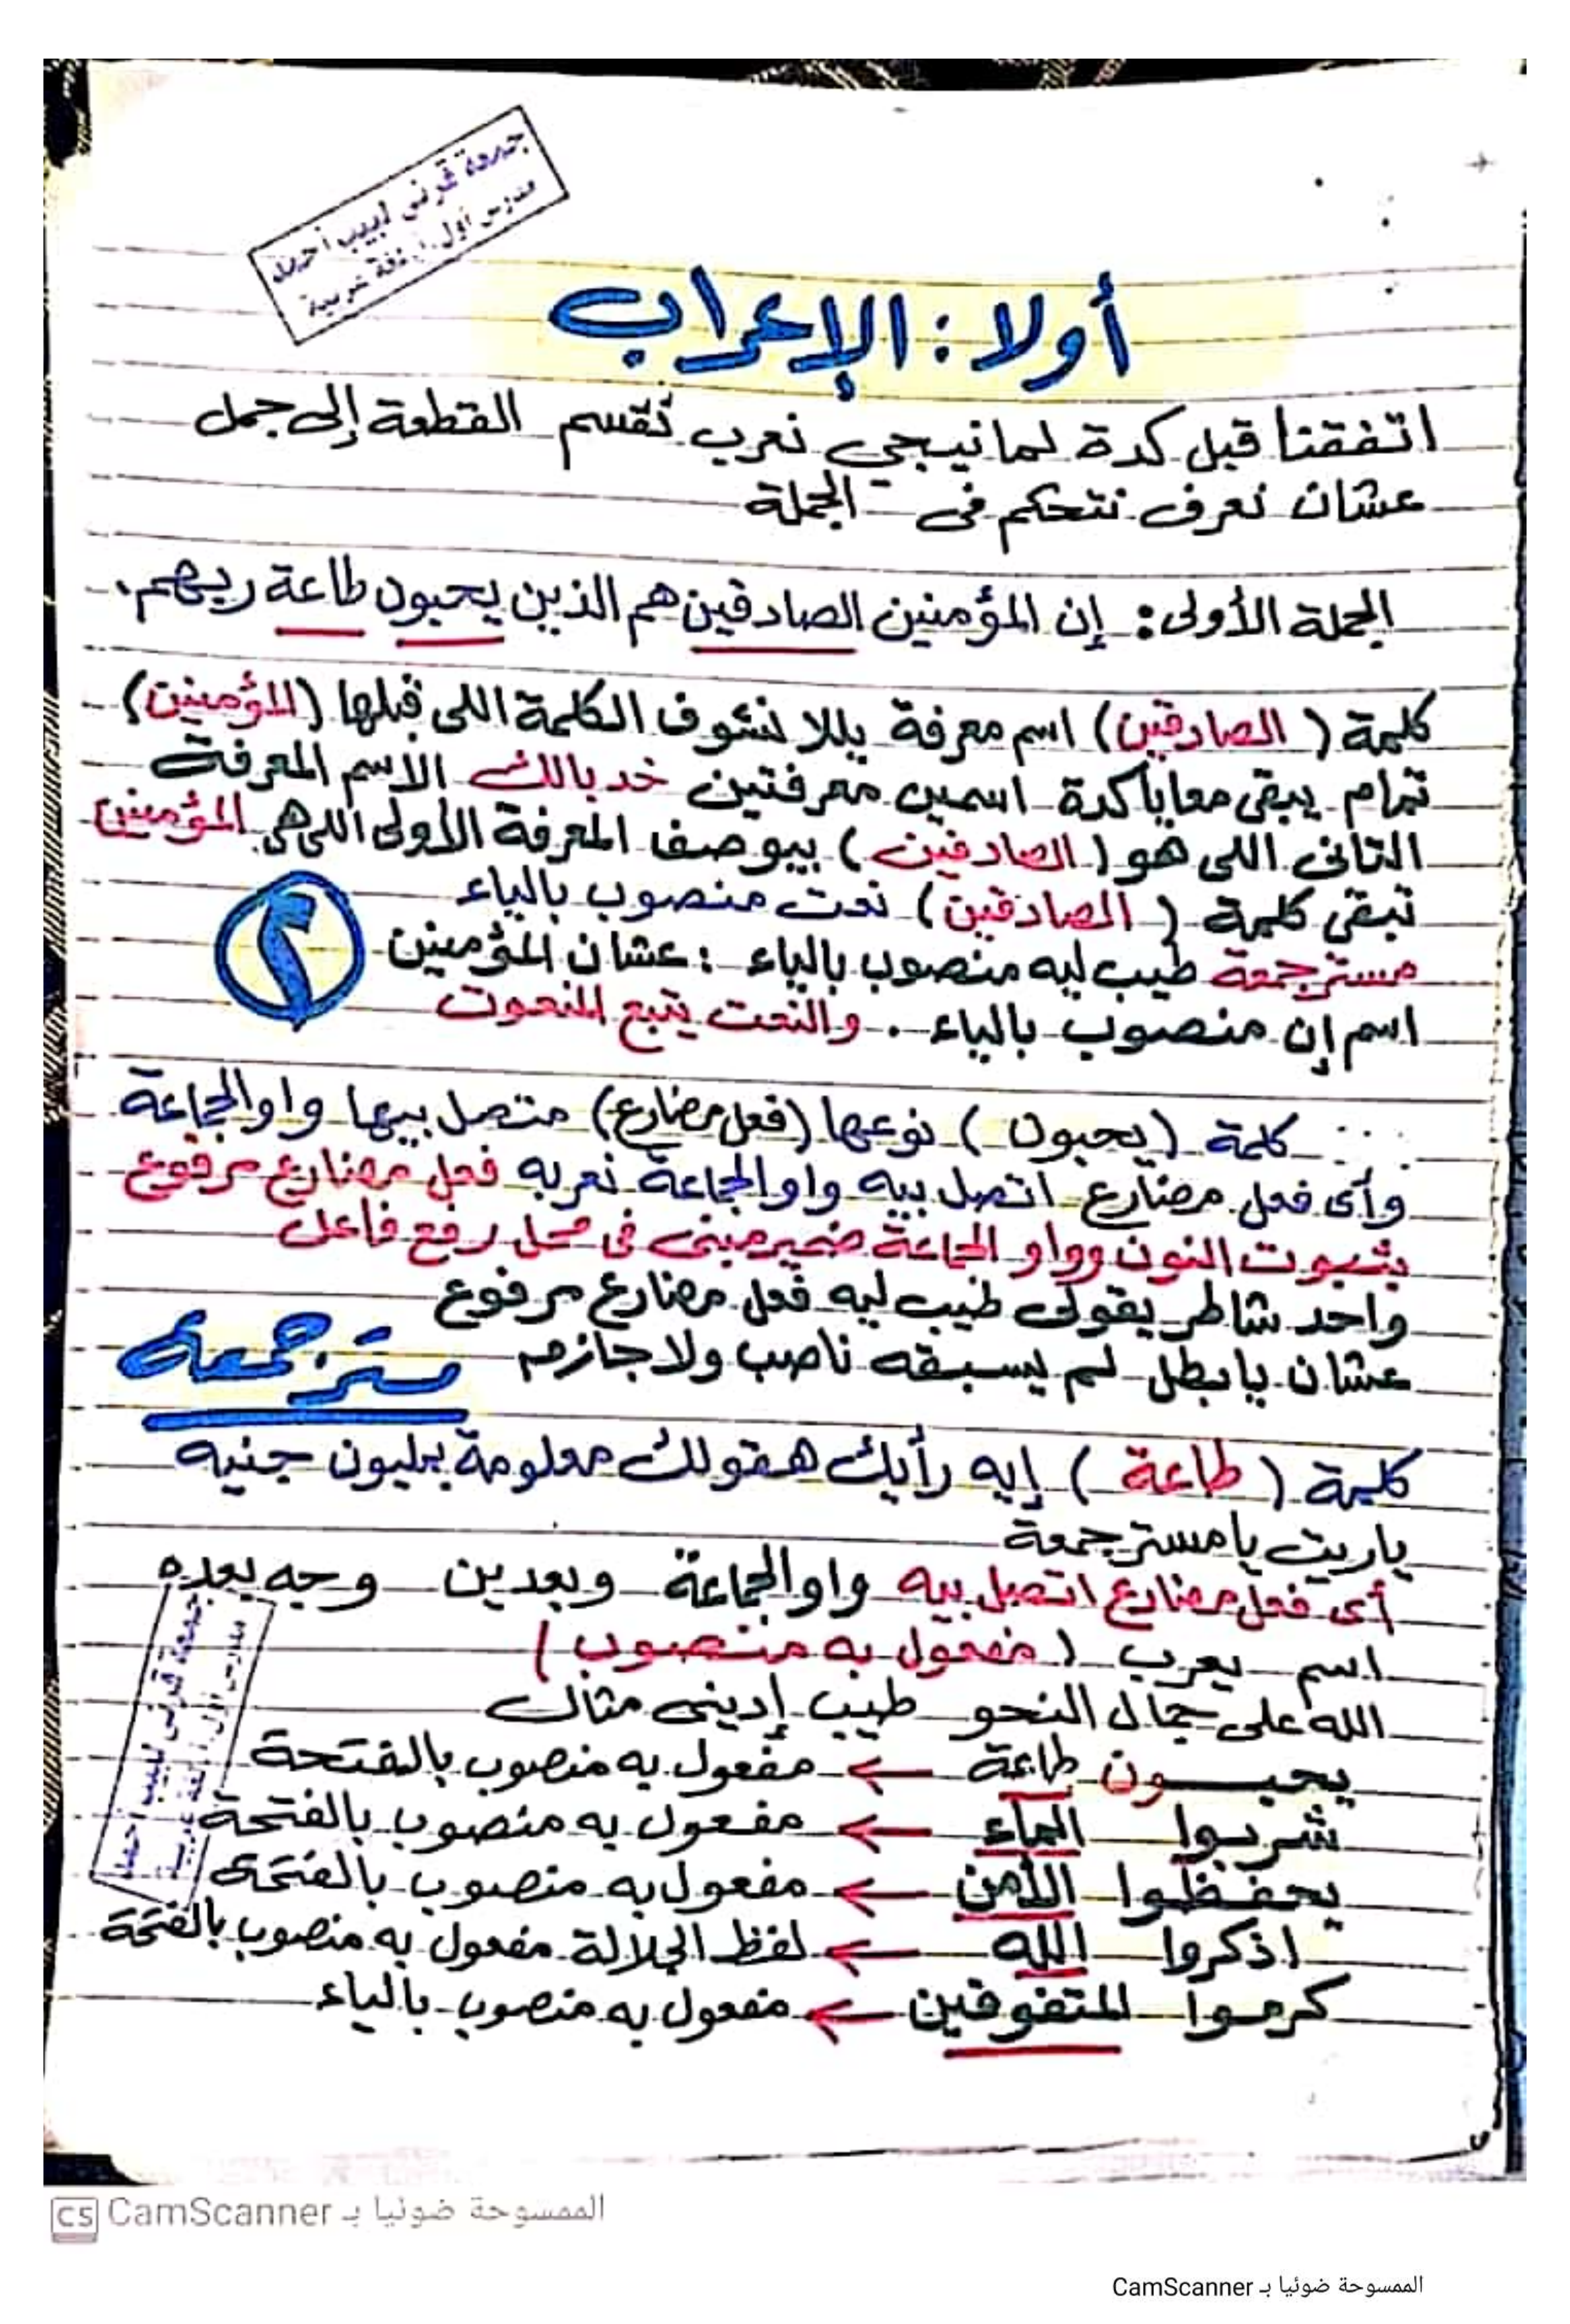 جمعة قرني لبيب أحمد
مدرس أول لغة عربية
أولا : الإعراب
اتفقنا قبل كدة لما نيجي نعرب نقسم القطعة إلى جمل
عشان نعرف نتحكم في الجملة
الجملة الأولى : إن المؤمنين الصادقين هم الذين يحبون طاعة ربهم .
كلمة ( الصادقين ) اسم معرفة يللا نشوف الكلمة اللى قبلها ( المؤمنين )
تمام يبقى معايا كدة اسمين معرفتين خد بالك الاسم المعرفة
التانى اللى هو ( الصادقين ) بيوصف المعرفة الأولى اللى هى المؤمنين
تبقى كلمة ( الصادقين ) نعت منصوب بالياء
مستر جمعة طيب ليه منصوب بالياء : عشان المؤمنين
اسم إن منصوب بالياء . والنعت يتبع المنعوت
٢
كلمة ( يحبون ) نوعها ( فعل مضارع ) متصل بيها واو الجماعة
وأى فعل مضارع اتصل بيه واو الجماعة نعربه فعل مضارع مرفوع
بثبوت النون وواو الجماعة ضمير مبنى فى محل رفع فاعل
واحد شاطر يقولى طيب ليه فعل مضارع مرفوع
عشان يا بطل لم يسبقه ناصب ولا جازم
مستر جمعة
كلمة ( طاعة ) إيه رأيك هقولك معلومة بمليون جنيه
ياريت يا مستر جمعة
أى فعل مضارع اتصل بيه واو الجماعة وبعدين وجه بعده
اسم يعرب ( مفعول به منصوب )
الله على جمال النحو طيب إدينى مثال
يحبــون طاعة ← مفعول به منصوب بالفتحة
شربوا الماء ← مفعول به منصوب بالفتحة
يحفظوا الأمن ← مفعول به منصوب بالفتحة
اذكروا الله ← لفظ الجلالة مفعول به منصوب بالفتحة
كرموا المتفوقين ← مفعول به منصوب بالياء
جمعة قرني لبيب أحمد
مدرس أول لغة عربية
CS الممسوحة ضوئيا بـ CamScanner
الممسوحة ضوئيا بـ CamScanner